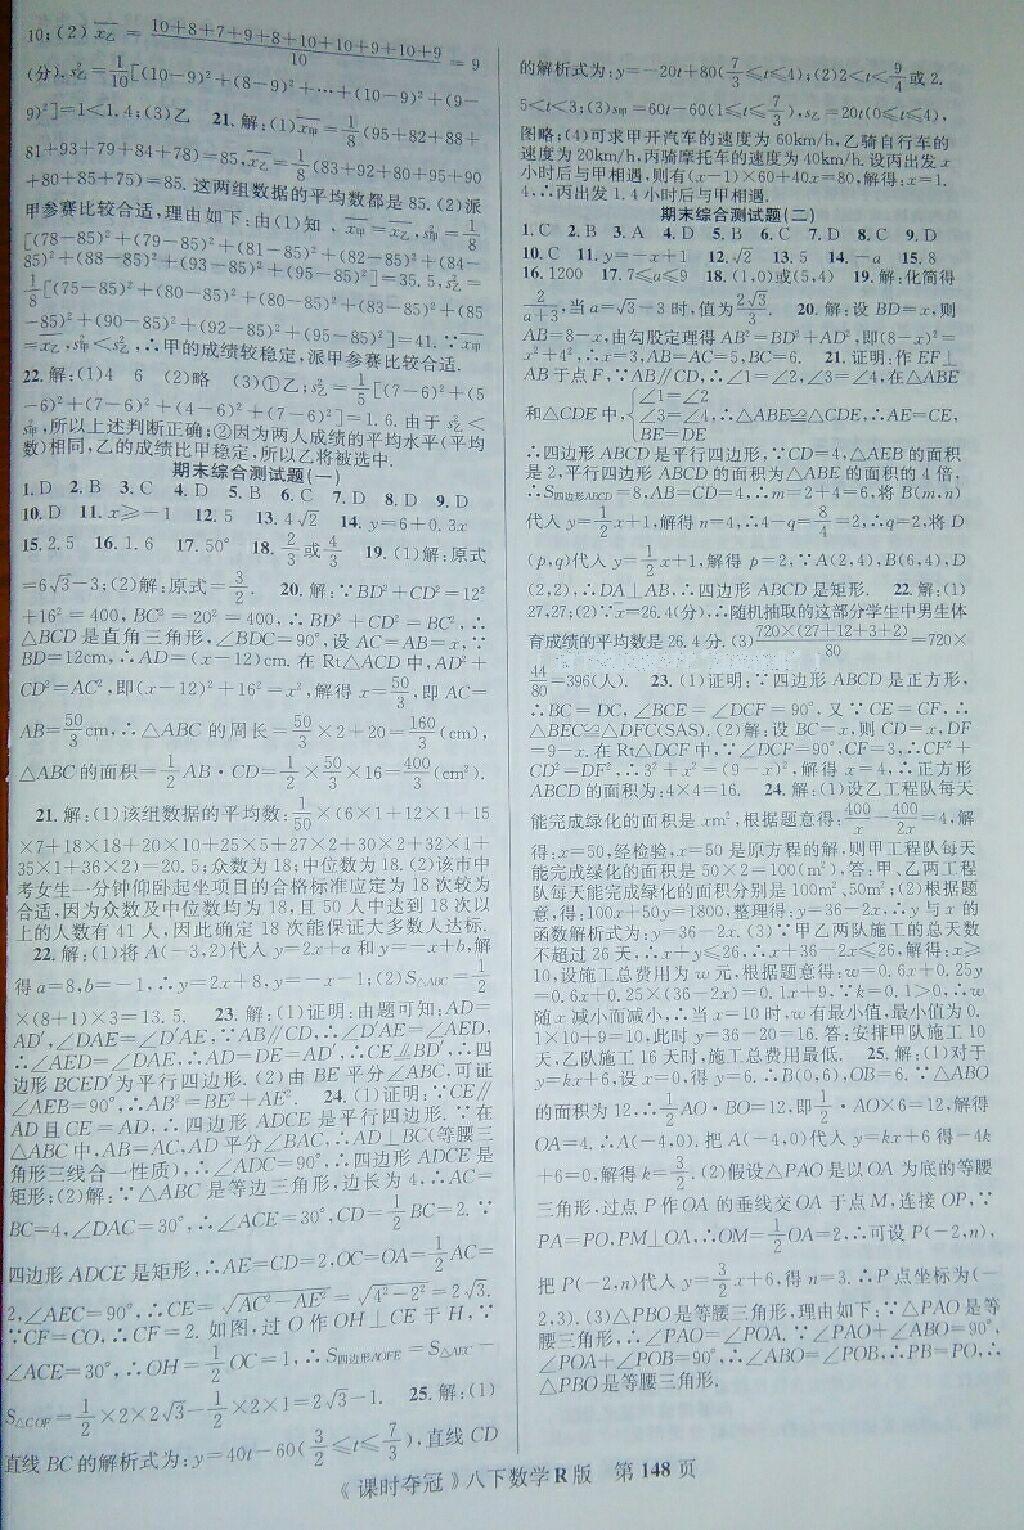 10;(2)x乙 = (10+8+7+9+8+10+10+9+10+9)/10 = 9
(分).s²乙=1/10[(10-9)²+(8-9)²+…+(10-9)²+(9-
9)²]=1<1.4;(3)乙 21.解:(1)x甲=1/8(95+82+88+
81+93+79+84+78)=85,x乙=1/8(83+92+80+95+90
+80+85+75)=85.这两组数据的平均数都是85.(2)派
甲参赛比较合适,理由如下:由(1)知,x甲=x乙,s²甲=1/8
[(78-85)²+(79-85)²+(81-85)²+(82-85)²+(84-
85)²+(88-85)²+(93-85)²+(95-85)²]=35.5,s²乙=
1/8[(75-85)²+(80-85)²+(80-85)²+(83-85)²+(85
-85)²+(90-85)²+(92-85)²+(95-85)²]=41.∵x甲
=x乙,s²甲<s²乙,∴甲的成绩较稳定,派甲参赛比较合适.
22.解:(1)4 6 (2)略 (3)①乙;s²乙=1/5[(7-6)²+(5
-6)²+(7-6)²+(4-6)²+(7-6)²]=1.6.由于s²乙<
s²甲,所以上述判断正确;②因为两人成绩的平均水平(平均
数)相同,乙的成绩比甲稳定,所以乙将被选中.
期末综合测试题(一)
1.D 2.B 3.C 4.D 5.B 6.C 7.D 8.D 9.D
10.D 11.x≥-1 12.5 13.4√2 14.y=6+0.3x
15.2.5 16.1.6 17.50° 18.2/3或4/3 19.(1)解:原式
=6√3-3;(2)解:原式=3/2. 20.解:∵BD²+CD²=12²
+16²=400,BC²=20²=400,∴BD²+CD²=BC²,∴
△BCD是直角三角形,∠BDC=90°,设AC=AB=x,∵
BD=12cm,∴AD=(x-12)cm.在Rt△ACD中,AD²+
CD²=AC²,即(x-12)²+16²=x²,解得x=50/3,即AC=
AB=50/3cm,∴△ABC的周长=50/3×2+20=160/3(cm),
△ABC的面积=1/2AB·CD=1/2×50/3×16=400/3(cm²).
21.解:(1)该组数据的平均数:1/50×(6×1+12×1+15
×7+18×18+20×10+25×5+27×2+30×2+32×1+
35×1+36×2)=20.5;众数为18;中位数为18.(2)该市中
考女生一分钟仰卧起坐项目的合格标准应定为18次较为
合适,因为众数及中位数均为18,且50人中达到18次以
上的人数有41人,因此确定18次能保证大多数人达标.
22.解:(1)将A(-3,2)代入y=2x+a和y=-x+b,解
得a=8,b=-1,∴y=2x+8,y=-x-1;(2)S△ABC=1/2
×(8+1)×3=13.5. 23.解:(1)证明:由题可知;AD=
AD′,∠DAE=∠D′AE,∵AB∥CD,∴∠D′AE=∠AED,
∴∠AED=∠DAE,∴AD=DE=AD′,∴CE∥BD′,∴四
边形BCED′为平行四边形.(2)由BE平分∠ABC,可证
∠AEB=90°,∴AB²=BE²+AE². 24.(1)证明:∵CE∥
AD且CE=AD,∴四边形ADCE是平行四边形.∵在
△ABC中,AB=AC,AD平分∠BAC,∴AD⊥BC(等腰三
角形三线合一性质),∴∠ADC=90°,∴四边形ADCE是
矩形;(2)解:∵△ABC是等边三角形,边长为4,∴AC=
BC=4,∠DAC=30°,∴∠ACE=30°,CD=1/2BC=2.∵
四边形ADCE是矩形,∴AE=CD=2,OC=OA=1/2AC=
2,∠AEC=90°,∴CE=√(AC²-AE²)=√(4²-2²)=2√3.
∵CF=CO,∴CF=2.如图,过O作OH⊥CE于H,∵
∠ACE=30°,∴OH=1/2OC=1,∴S四边形AOFE=S△AEC-
S△COF=1/2×2×2√3-1/2×2×1=2√3-1. 25.解:(1)
直线BC的解析式为:y=40t-60(3/2≤t≤7/3),直线CD
的解析式为:y=-20t+80(7/3≤t≤4);(2)2<t<9/4或2.
5<t<3;(3)s甲=60t-60(1≤t≤7/3),s乙=20t(0≤t≤4),
图略;(4)可求甲开汽车的速度为60km/h,乙骑自行车的
速度为20km/h,丙骑摩托车的速度为40km/h.设丙出发x
小时后与甲相遇,则有(x-1)×60+40x=80,解得:x=1.
4,∴丙出发1.4小时后与甲相遇.
期末综合测试题(二)
1.C 2.B 3.A 4.D 5.B 6.C 7.D 8.C 9.D
10.C 11.y=-x+1 12.√2 13.5 14.-a 15.8
16.1200 17.7≤a≤9 18.(1,0)或(5,4) 19.解:化简得
2/(a+3),当a=√3-3时,值为2√3/3. 20.解:设BD=x,则
AB=8-x,由勾股定理得AB²=BD²+AD²,即(8-x)²=
x²+4²,∴x=3,AB=AC=5,BC=6. 21.证明:作EF⊥
AB于点F,∵AB∥CD,∴∠1=∠2,∠3=∠4,在△ABE
和△CDE中,{∠1=∠2 ∠3=∠4 BE=DE,∴△ABE≌△CDE,∴AE=CE,
∴四边形ABCD是平行四边形,∵CD=4,△AEB的面积
是2,平行四边形ABCD的面积为△ABE的面积的4倍.
∴S四边形ABCD=8,AB=CD=4,∴m=2+4=6,将B(m,n)
代入y=1/2x+1,解得n=4,∴4-q=8/4=2,∴q=2,将D
(p,q)代入y=1/2x+1,解得p=2,∵A(2,4),B(6,4),D
(2,2),∴DA⊥AB,∴四边形ABCD是矩形. 22.解:(1)
27,27;(2)∵x=26.4(分),∴随机抽取的这部分学生中男生体
育成绩的平均数是26.4分.(3)720×(27+12+3+2)/80=720×
44/80=396(人). 23.(1)证明:∵四边形ABCD是正方形,
∴BC=DC,∠BCE=∠DCF=90°,又∵CE=CF,∴
△BEC≌△DFC(SAS).(2)解:设BC=x,则CD=x,DF
=9-x.在Rt△DCF中,∵∠DCF=90°,CF=3,∴CF²+
CD²=DF²,∴3²+x²=(9-x)²,解得x=4,∴正方形
ABCD的面积为:4×4=16. 24.解:(1)设乙工程队每天
能完成绿化的面积是xm²,根据题意得:400/x-400/2x=4,解
得:x=50,经检验,x=50是原方程的解,则甲工程队每天
能完成绿化的面积是50×2=100(m²),答:甲、乙两工程
队每天能完成绿化的面积分别是100m²、50m²;(2)根据题
意,得:100x+50y=1800,整理得:y=36-2x,∴y与x的
函数解析式为:y=36-2x.(3)∵甲乙两队施工的总天数
不超过26天,∴x+y≤26,∴x+36-2x≤26,解得:x≥
10,设施工总费用为w元,根据题意得:w=0.6x+0.25y
=0.6x+0.25×(36-2x)=0.1x+9,∵k=0.1>0,∴w
随x减小而减小,∴当x=10时,w有最小值,最小值为0.
1×10+9=10,此时y=36-20=16.答:安排甲队施工10
天,乙队施工16天时,施工总费用最低. 25.解:(1)对于
y=kx+6,设x=0,得y=6.∴B(0,6),OB=6.∵△ABO
的面积为12,∴1/2AO·BO=12,即1/2·AO×6=12,解得
OA=4,∴A(-4,0).把A(-4,0)代入y=kx+6得-4k
+6=0,解得k=3/2.(2)假设△PAO是以OA为底的等腰
三角形,过点P作OA的垂线交OA于点M,连接OP,∵
PA=PO,PM⊥OA,∴OM=1/2OA=2,∴可设P(-2,n),
把P(-2,n)代入y=3/2x+6,得n=3.∴P点坐标为(-
2,3).(3)△PBO是等腰三角形,理由如下:∵△PAO是等
腰三角形,∴∠PAO=∠POA.∵∠PAO+∠ABO=90°,
∠POA+∠POB=90°,∴∠ABO=∠POB,∴PB=PO,∴
△PBO是等腰三角形.
《课时夺冠》八下数学R版 第148页